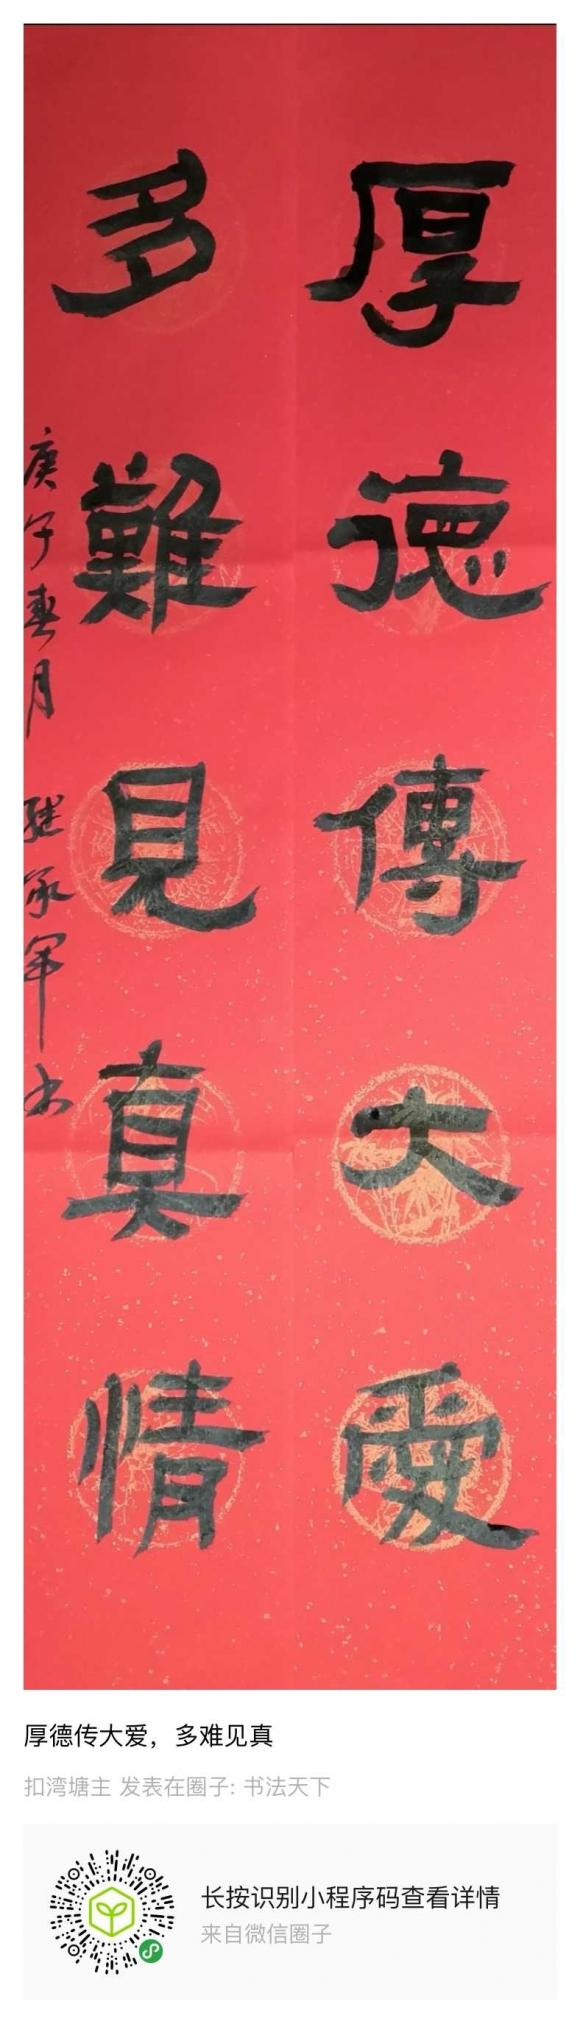 厚德傳大愛
多難見真情
庚子春月 继承军书
厚德传大爱，多难见真
扣湾塘主 发表在圈子: 书法天下
长按识别小程序码查看详情
来自微信圈子